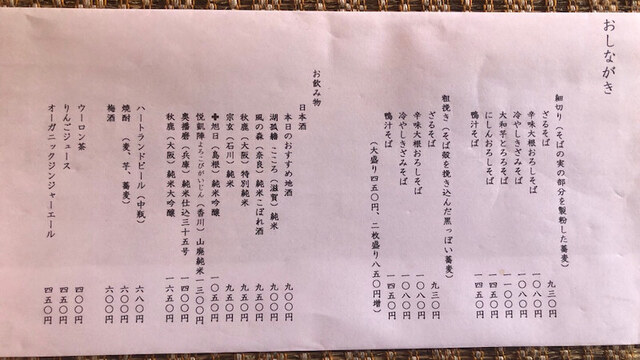 おしながき
細切り（そばの実の部分を製粉した蕎麦）
ざるそば 九三〇円
辛味大根おろしそば 一〇八〇円
冷やしきざみそば 一〇八〇円
大和芋とろろそば 一一〇〇円
にしんおろしそば 一四五〇円
鴨汁そば 一四五〇円
粗挽き（そば殻を挽き込んだ黒っぽい蕎麦）
ざるそば 九三〇円
辛味大根おろしそば 一〇八〇円
冷やしきざみそば 一〇八〇円
鴨汁そば 一四五〇円
（大盛り四五〇円、二枚盛り八五〇円増）
お飲み物
日本酒
本日のおすすめ地酒 九〇〇円
こころ（滋賀）純米 九〇〇円
風の森（奈良）純米こぼれ酒 九五〇円
秋鹿（大阪）特別純米 九五〇円
宗玄（石川）純米 九五〇円
旭日（島根）純米大吟醸 一〇五〇円
悦凱陣よろこびがいじん（香川）山廃純米 一三〇〇円
奥播磨（兵庫）純米仕込三十五号 一四〇〇円
秋鹿（大阪）純米大吟醸 一六五〇円
ハートランドビール（中瓶） 六八〇円
焼酎（麦、芋、蕎麦） 六〇〇円
梅酒 六〇〇円
ウーロン茶 四〇〇円
りんごジュース 四五〇円
オーガニックジンジャーエール 四五〇円